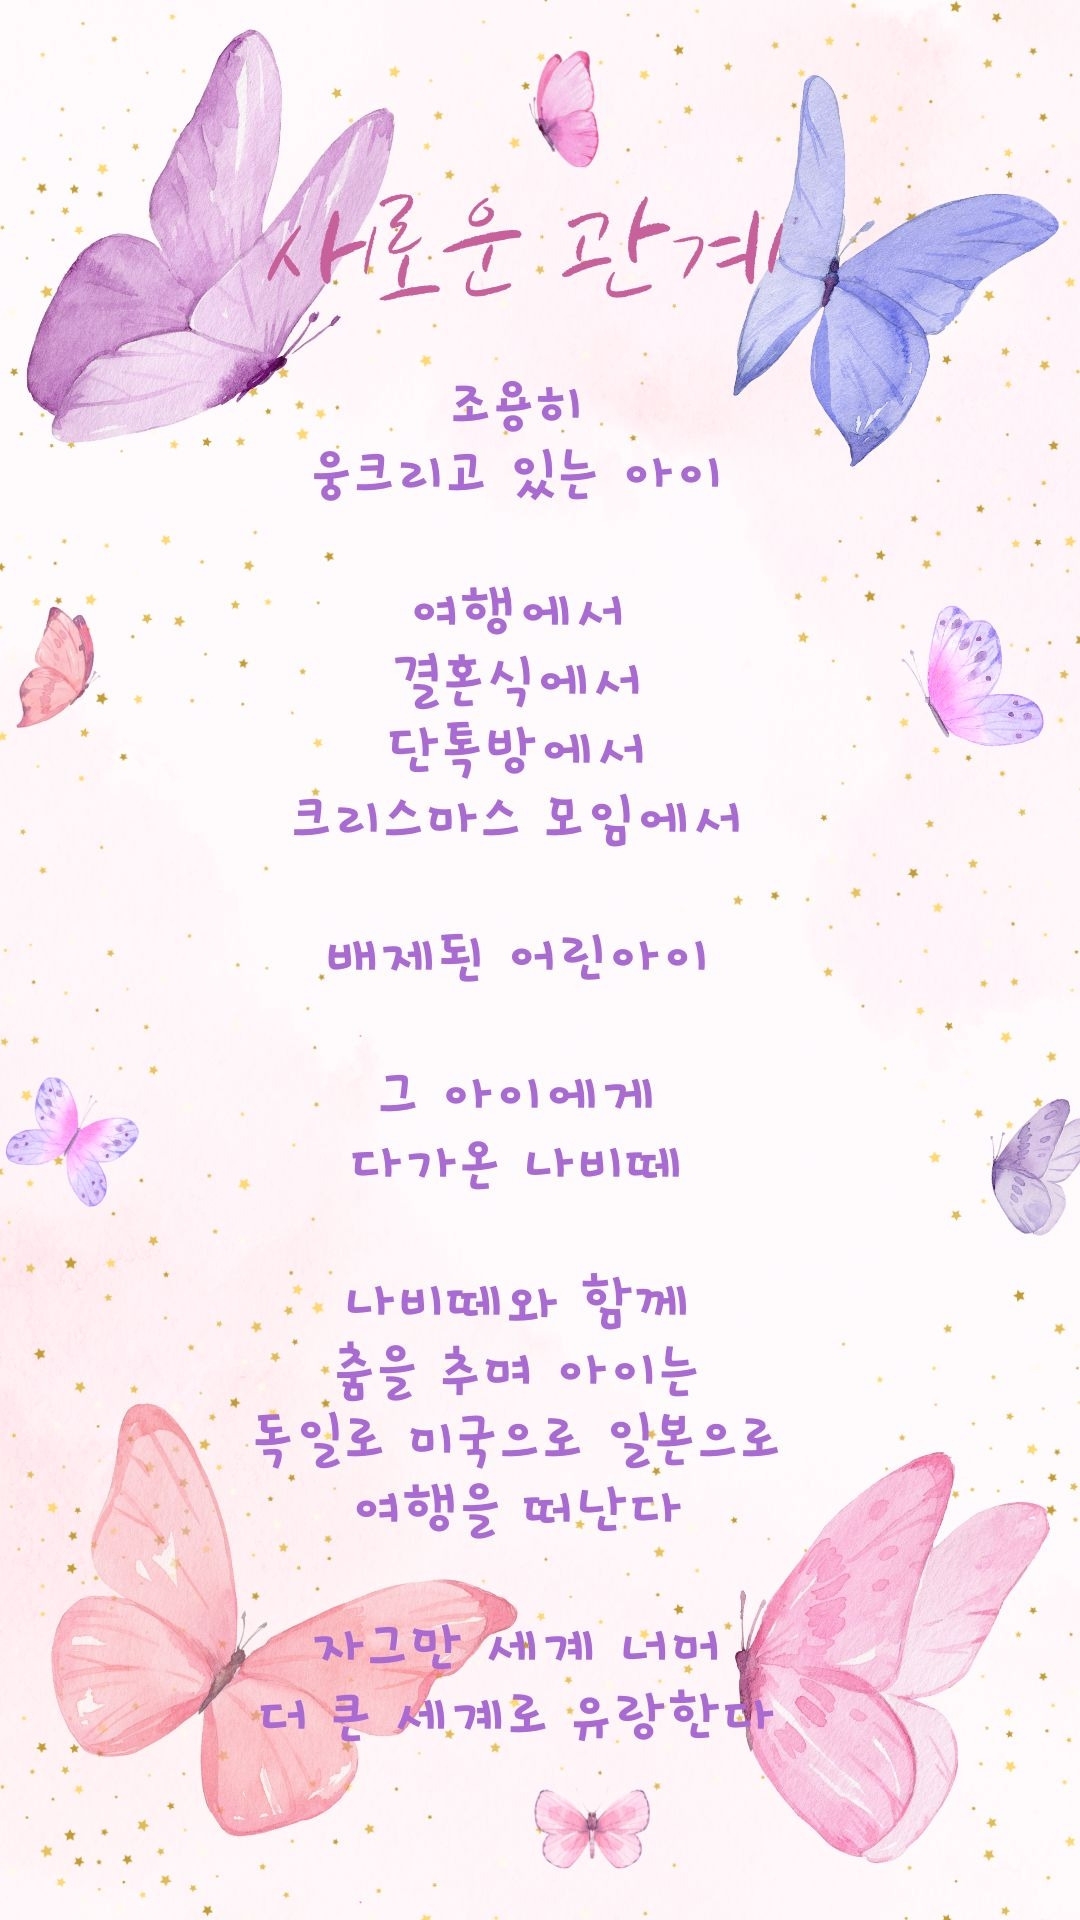 새로운 관계
조용히
웅크리고 있는 아이
여행에서
결혼식에서
단톡방에서
크리스마스 모임에서
배제된 어린아이
그 아이에게
다가온 나비떼
나비떼와 함께
춤을 추며 아이는
독일로 미국으로 일본으로
여행을 떠난다
자그만 세계 너머
더 큰 세계로 유랑한다